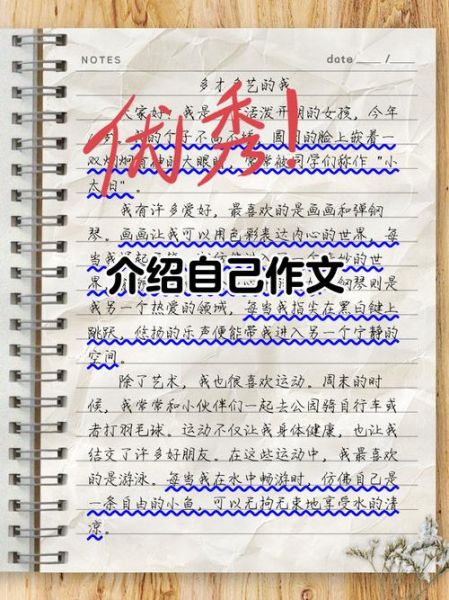 NOTES date / /
多才多艺的我
大家好！我是 活泼开朗的女孩，今年
的个子不高不矮，圆圆的脸上嵌着一
双炯炯有神的大眼睛，常常被同学们称作“小
太阳”。
我有许多爱好，最喜欢的是画画和弹钢
琴。画画让我可以用色彩表达内心的世界，每
当我
界， 钢琴则是
我另一个热爱的领域，每当我指尖在黑白键上
跳跃，悠扬的乐声便能带我进入另一个宁静的
空间。
除了艺术，我也很喜欢运动。周末的时
候，我常常和小伙伴们一起去公园骑自行车或
者打羽毛球。运动不仅让我身体健康，也让我
结交了许多好朋友。在这些运动中，我最喜欢
的是游泳。每当我在水中畅游时，仿佛自己是
一条自由的小鱼，可以无拘无束地享受水的清
凉。
优秀！
介绍自己作文